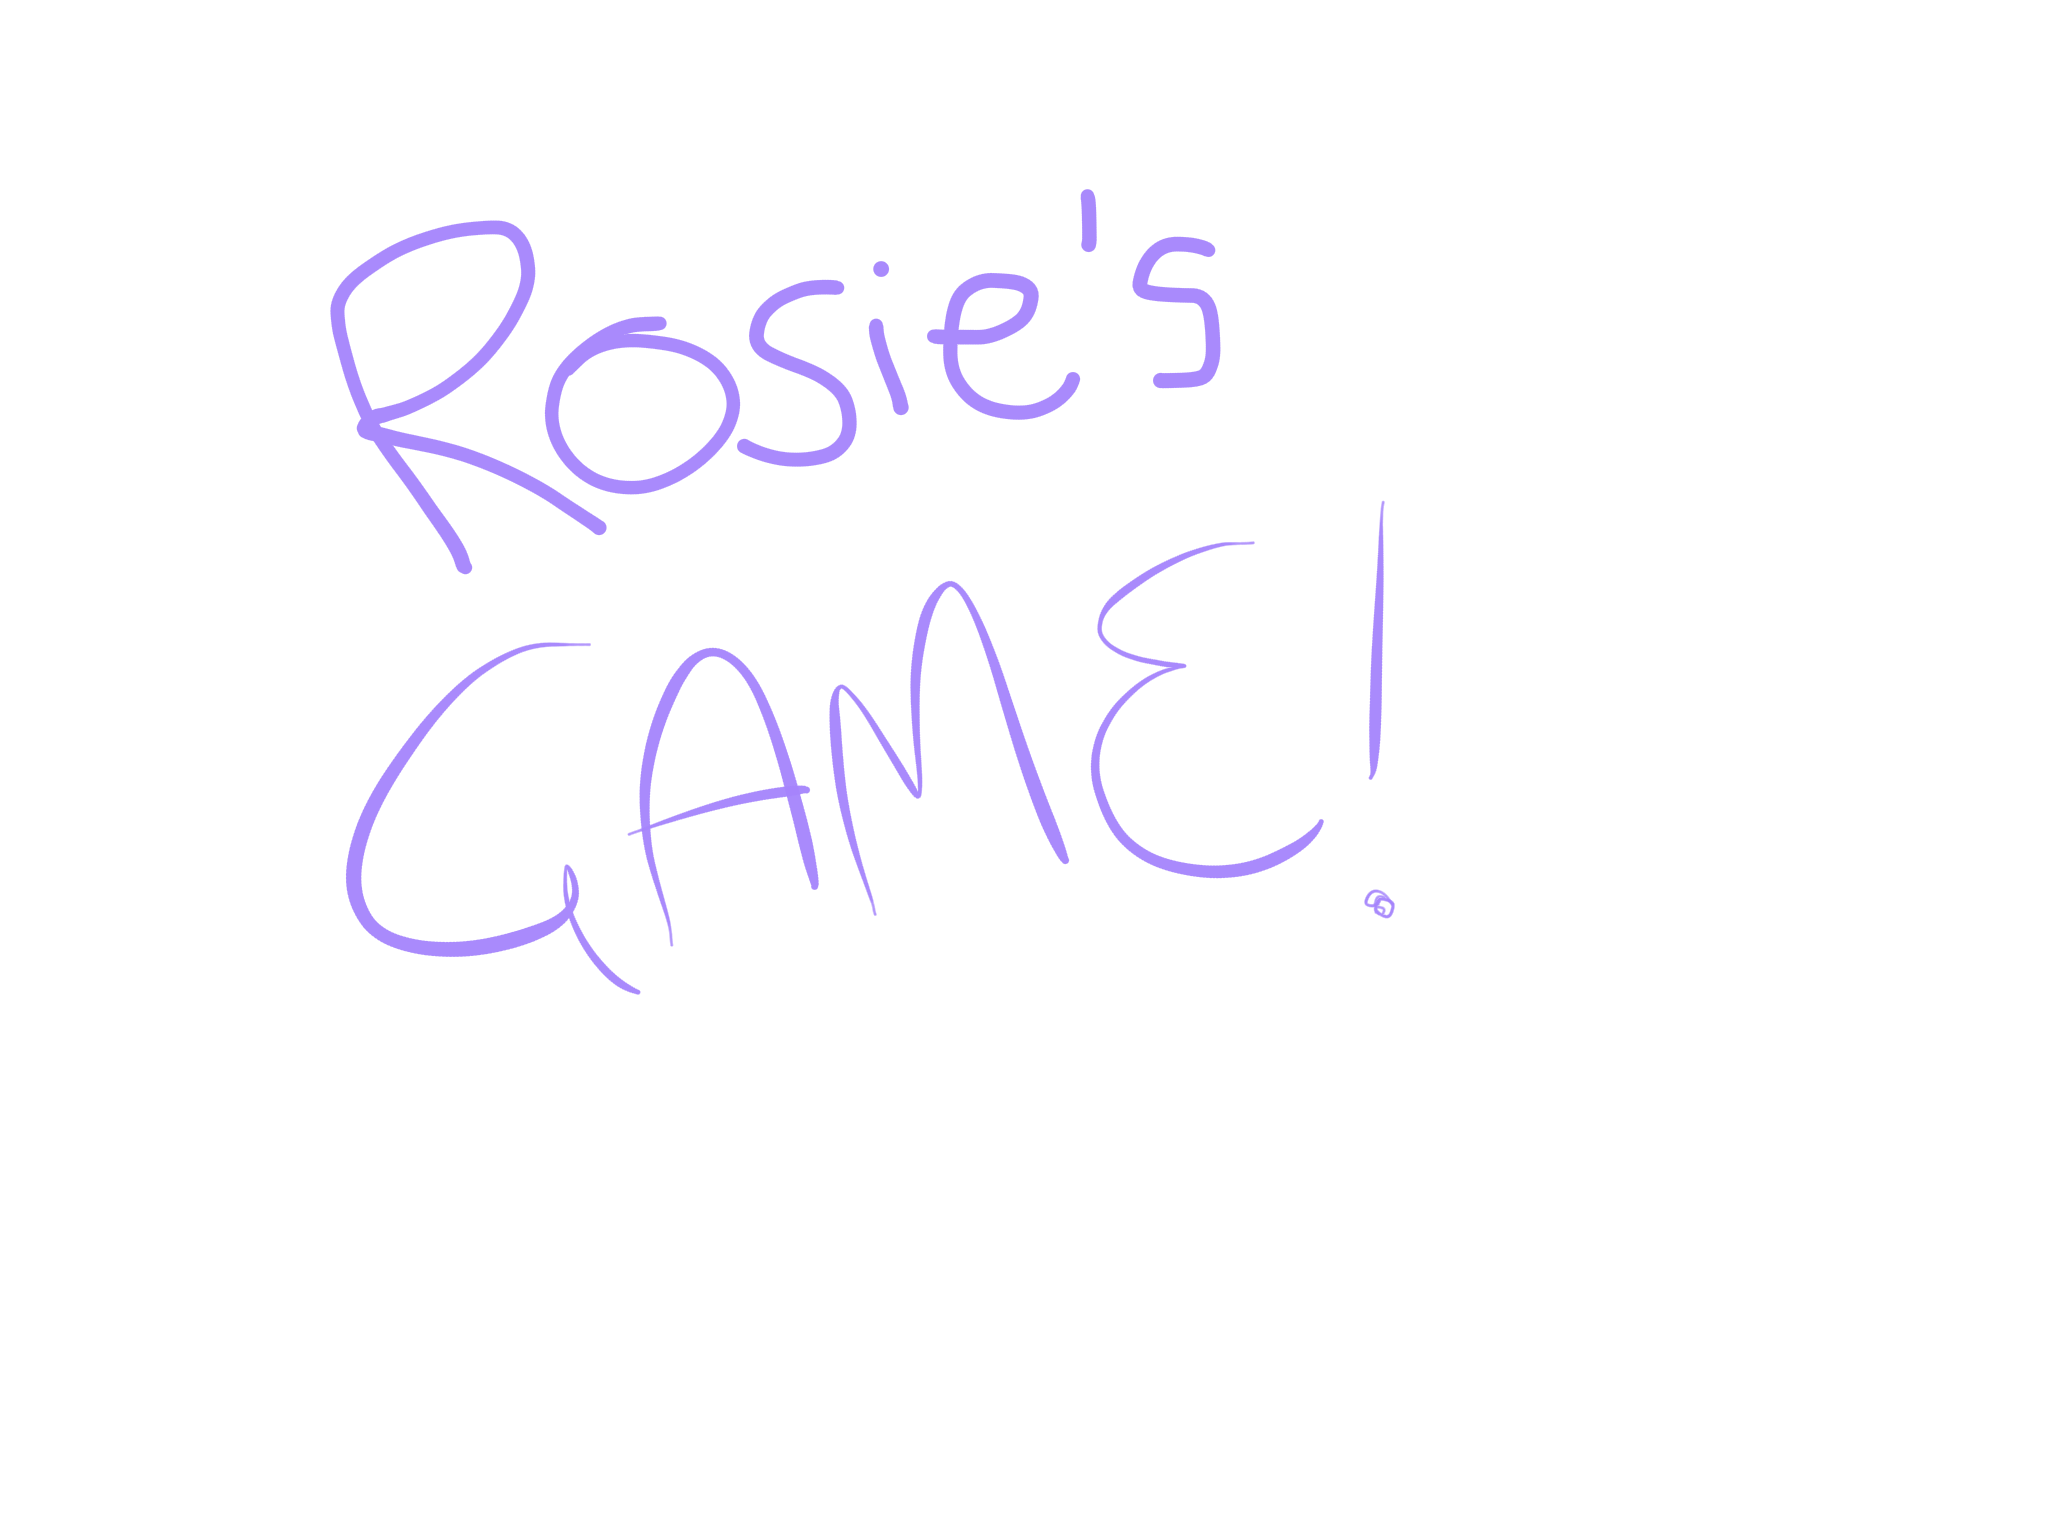 Rosie's
GAME!